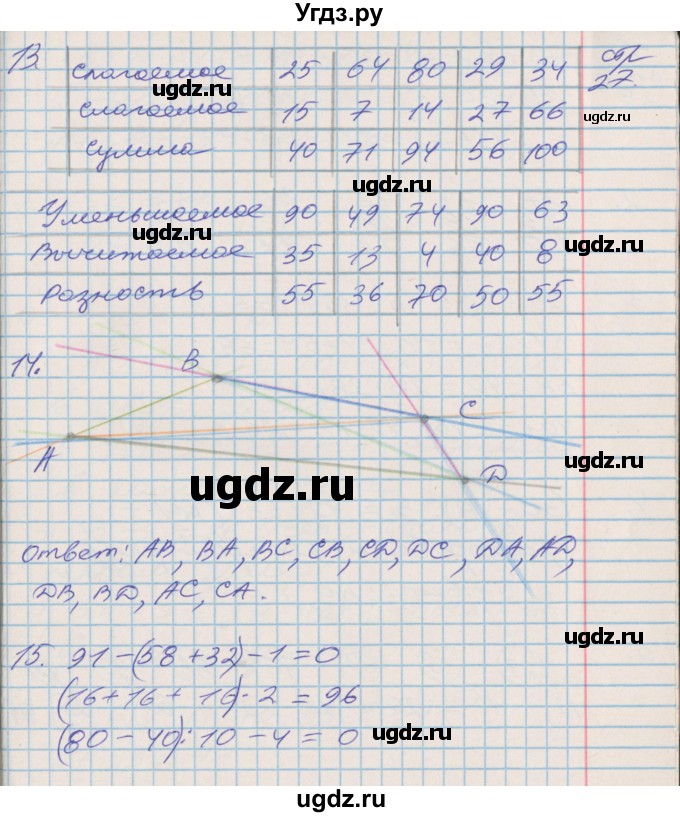 Угдз.ру
13. Слагаемое 25 64 80 29 34 стр
27.
Слагаемое 15 7 14 27 66
Сумма 40 71 94 56 100
Уменьшаемое 90 49 74 90 63
Вычитаемое 35 13 4 40 8
Разность 55 36 70 50 55
14.
B
C
A
D
Ответ: AB, BA, BC, CB, CD, DC, DA, AD,
DB, BD, AC, CA.
15. 91-(58+32)-1=0
(16+16+16)·2=96
(80-40):10-4=0
ugdz.ru
ugdz.ru
ugdz.ru
ugdz.ru
ugdz.ru
ugdz.ru
ugdz.ru
ugdz.ru
ugdz.ru
ugdz.ru